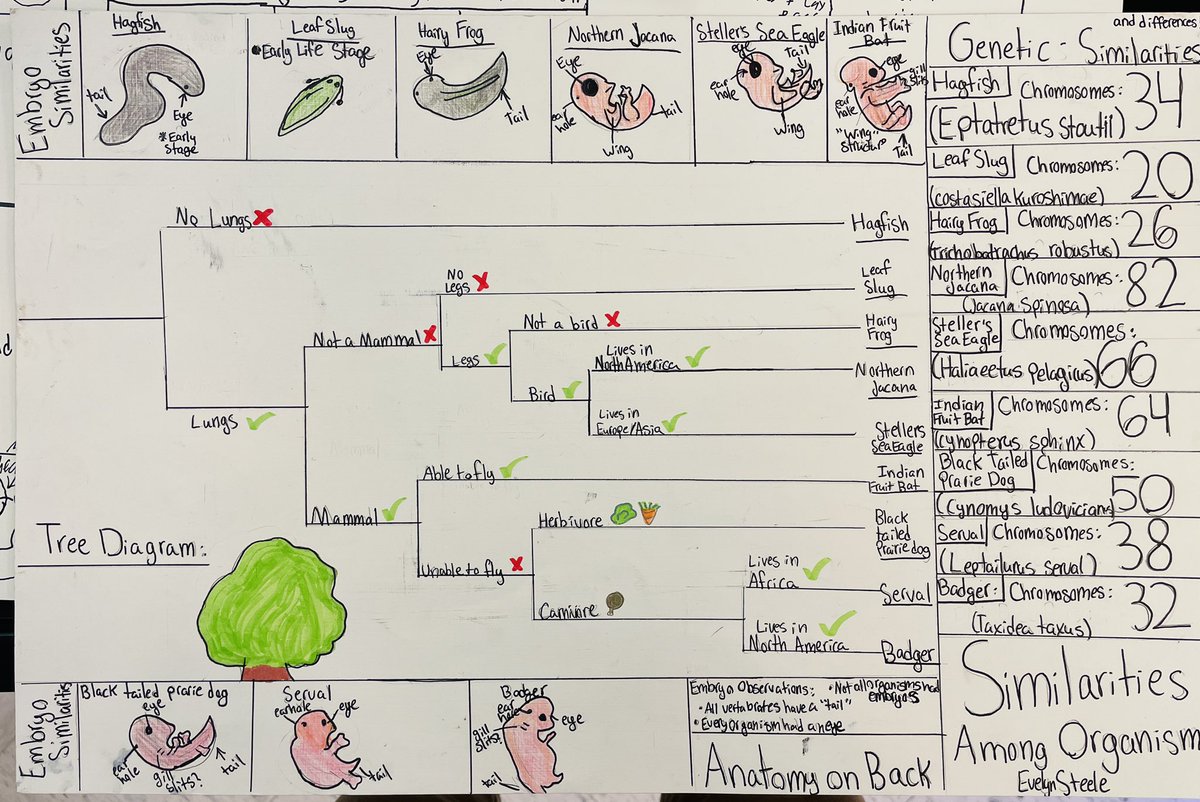 Embryo Similarities
Hagfish
tail
Eye
*Early Stage
Leaf Slug
•Early Life Stage
Hairy Frog
Eye
Tail
Northern Jacana
Eye
ear hole
Wing
tail
Stellers Sea Eagle
eye
Tail
ear hole
Wing
Indian Fruit Bat
eye
gill slits
ear hole
"Wing" Structur
Tail
and differences
Genetic - Similarities
Hagfish Chromosomes: 34
(Eptatretus Stoutii)
Leaf Slug Chromosomes: 20
(costasiella kuroshimae)
Hairy Frog Chromosomes: 26
(tricholbatrachus robustus)
Northern Jacana Chromosomes: 82
(Jacana Spinosa)
Steller's Sea Eagle Chromosomes: 66
(Haliaeetus pelagirus)
Indian Fruit Bat Chromosomes: 64
(cynopterus sphinx)
Black tailed Prarie Dog Chromosomes: 50
(Cynomys ludovicians)
Serval Chromosomes: 38
(Leptailurus serval)
Badger: Chromosomes: 32
(Taxidea taxus)
No Lungs
Hagfish
No Legs
Leaf Slug
Not a Mammal
Not a bird
Hairy Frog
Legs
Lives in North America
Northern Jacana
Bird
Lives in Europe/Asia
Stellers Sea Eagle
Lungs
Able to fly
Indian Fruit Bat
Mammal
Herbivore
Black tailed Prairie dog
Unable to fly
Lives in Africa
Serval
Carnivore
Lives in North America
Badger
Tree Diagram:
Embryo Similarities
Black tailed prarie dog
eye
ear hole
gill slits?
tail
Serval
earhole
eye
tail
Badger
ear hole
eye
gill slits?
tail
Embryo Observations: •Not all organisms had embryos
•All vertabrates have a "tail"
•Every organism had an eye
Anatomy on Back
Similarities
Among Organism
Evelyn Steele